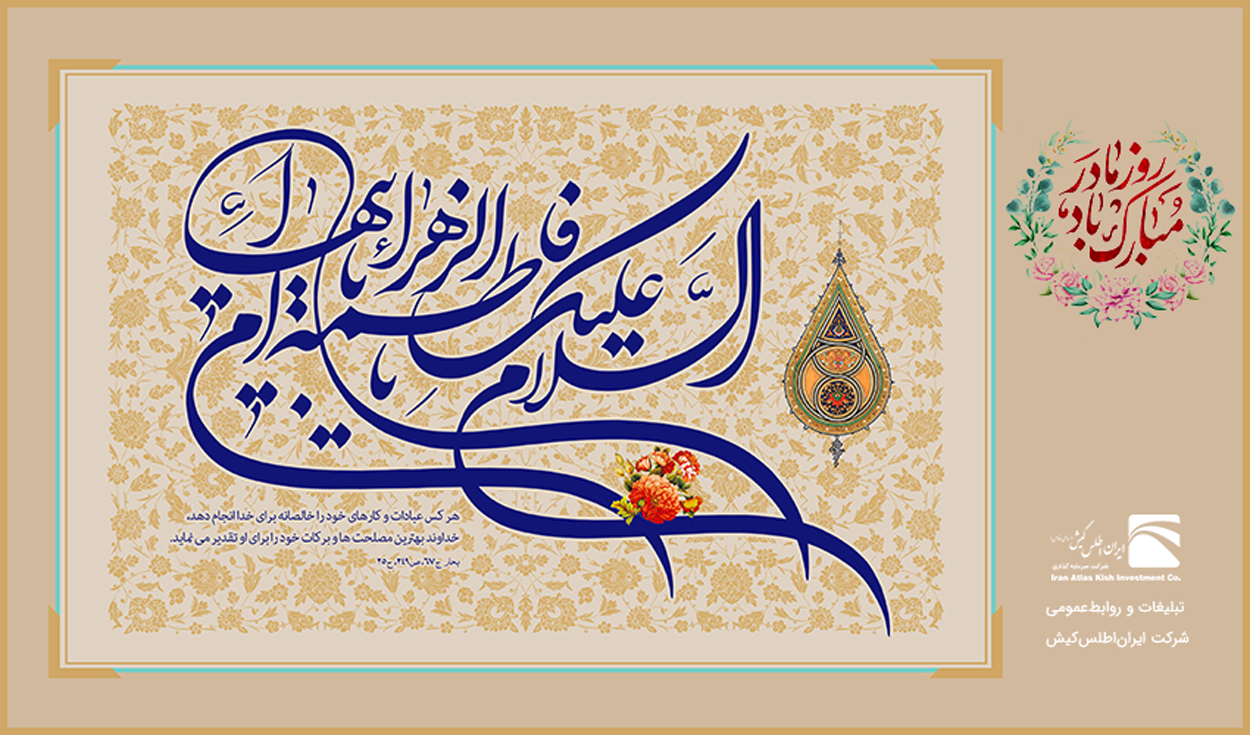 السلام علیک یا فاطمة الزهراء یا ام ابیها
هر کس عبادات و کارهای خود را خالصانه برای خدا انجام دهد،
خداوند بهترین مصلحت ها و برکات خود را برای او تقدیر می نماید.
بحار ج۶۷، ص۲۴۹، ح۲۵
روز مادر
مبارک باد
ایران اطلس کیش
شرکت سرمایه گذاری
Iran Atlas Kish Investment Co.
تبلیغات و روابط‌عمومی
شرکت ایران‌اطلس‌کیش